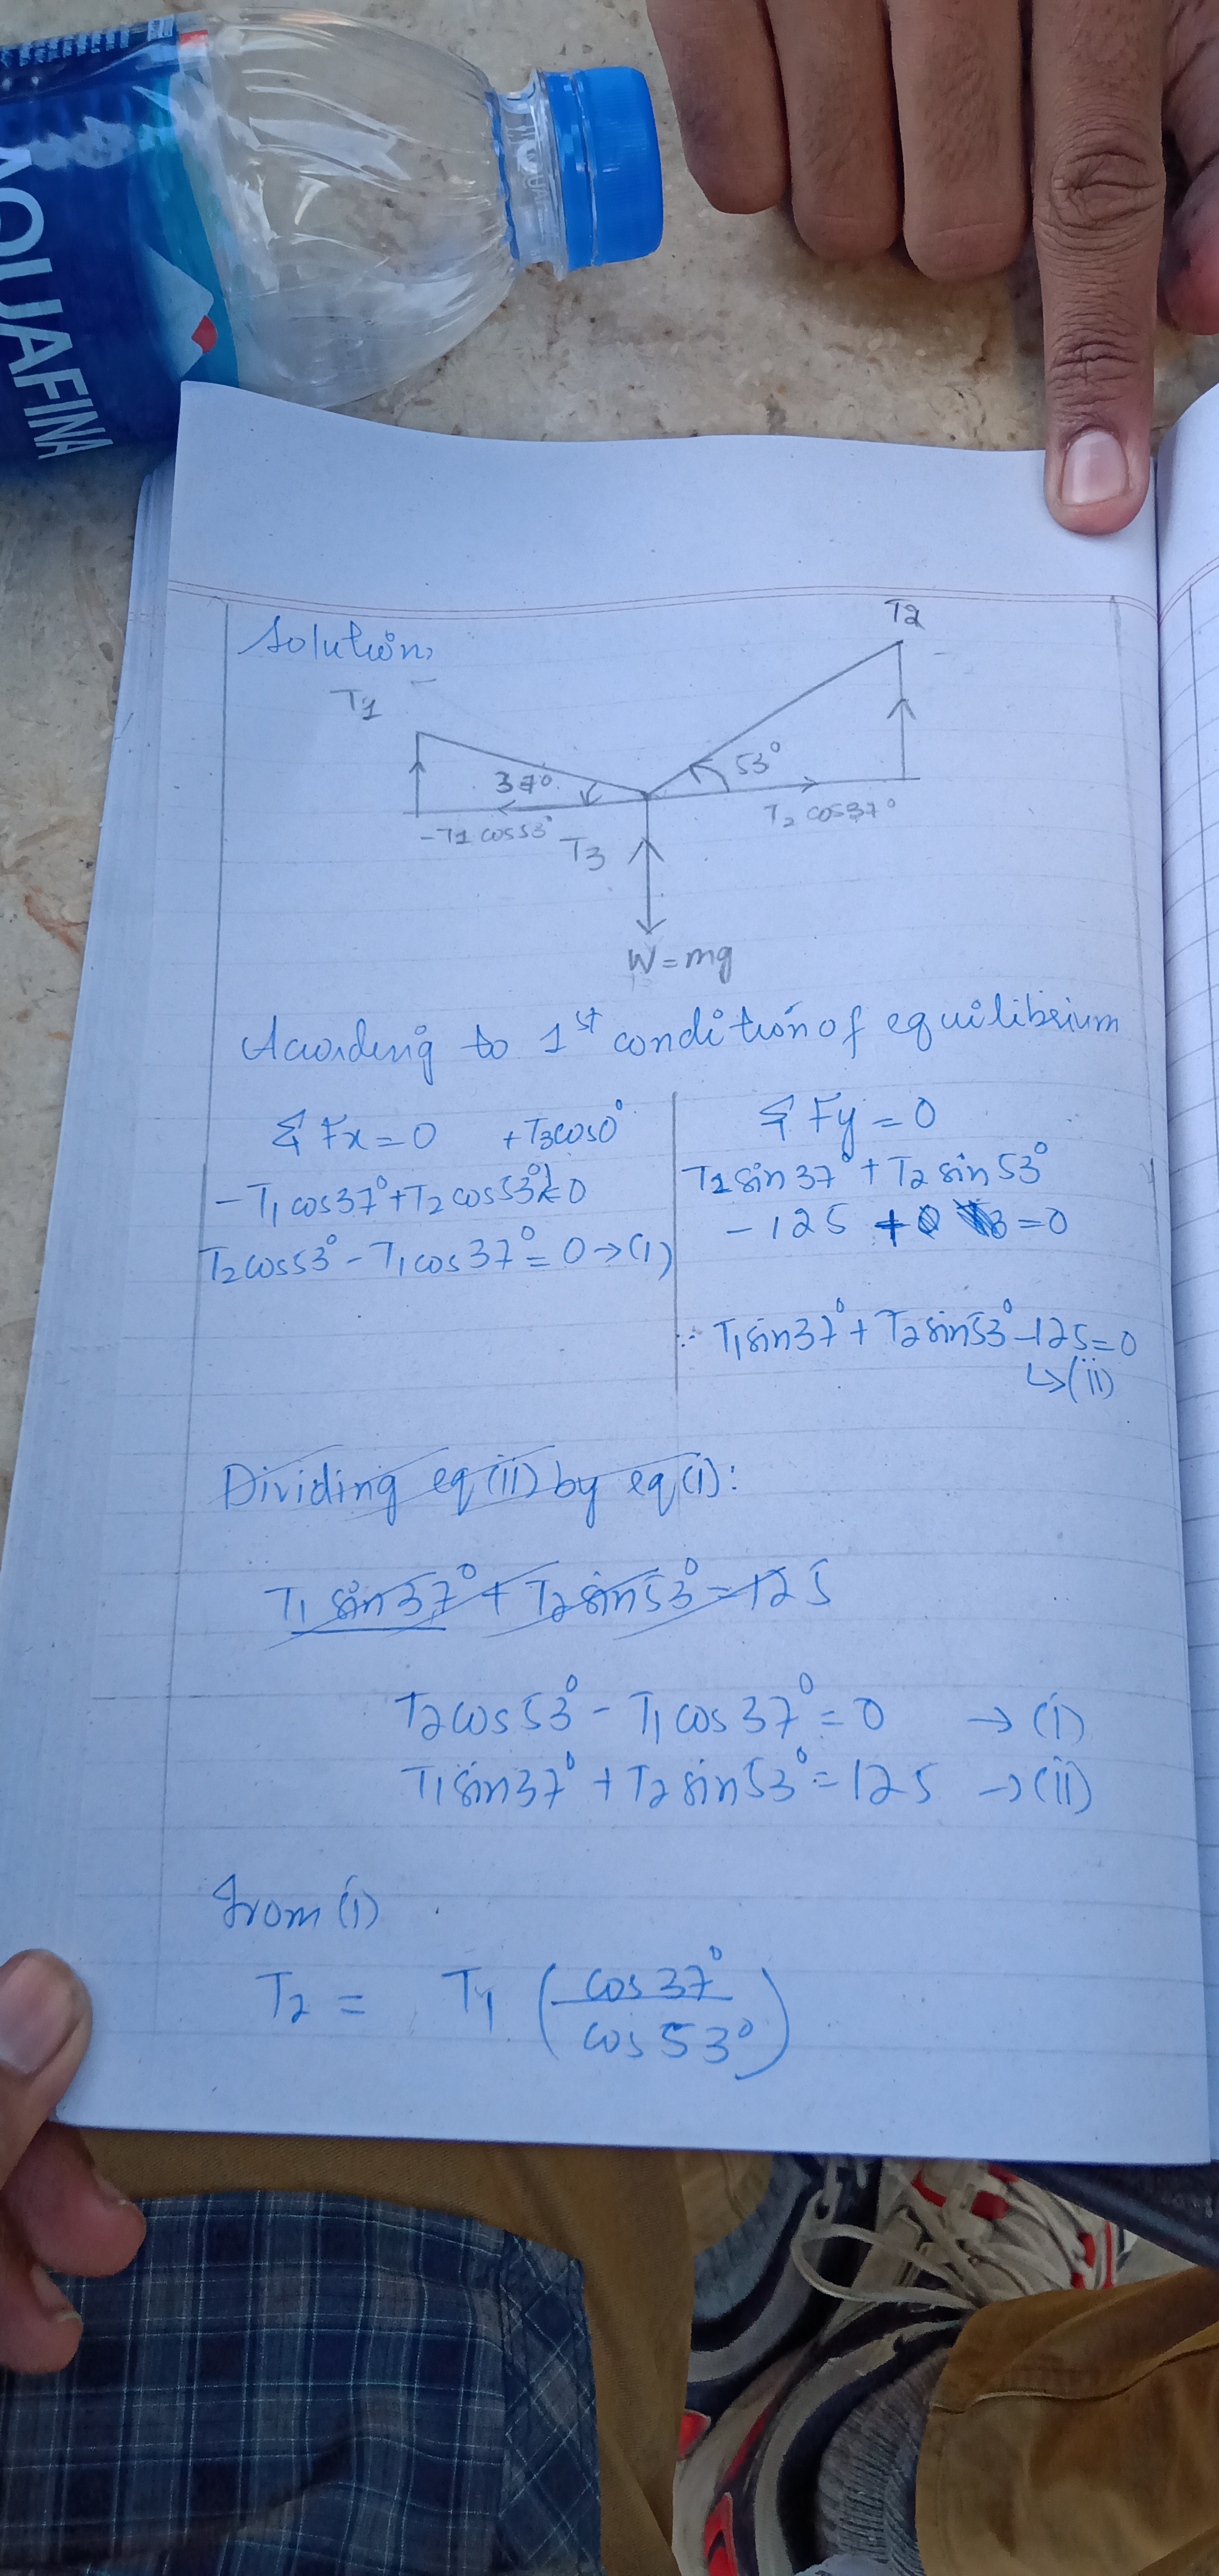 AQUAFINA
Solution,
T2
T1
37°
53°
-T1 cos53°
T2 cos37°
T3
W=mg
According to 1st condition of equilibrium
Σ Fx=0 +T3cos0°
-T1cos37°+T2cos53°=0
T2cos53°-T1cos37°=0→(1)
Σ Fy=0
T1sin37°+T2sin53°
-125 +0 =0
∴ T1sin37°+T2sin53°-125=0
↳(ii)
Dividing eq(ii) by eq(i):
T1 sin37°+T2sin53°=125
T2cos53°-T1cos37°=0 →(i)
T1sin37°+T2sin53°=125 →(ii)
from (i)
T2 = T1 (cos37°
cos53°)